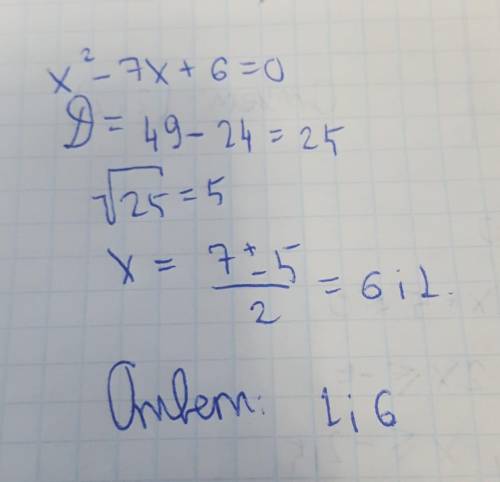 x² - 7x + 6 = 0
D = 49 - 24 = 25
√25 = 5
x = (7 ± 5)/2 = 6; 1.
Ответ: 1; 6